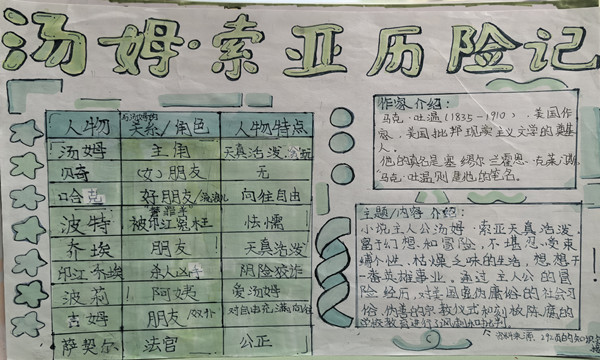 汤姆·索亚历险记
人物 与汤姆的关系/角色 人物特点
汤姆 主角 天真浩泼、贪玩
贝奇 (女)朋友 无
哈克 好朋友/流浪儿 向往自由
波特 "替罪羊" 被印江冤枉 怯懦
乔埃 朋友 天真浩泼
印江·乔埃 杀人凶手 阴险狡诈
波莉 阿姨 爱汤姆
吉姆 朋友/奴仆 对自由充满向往
萨契尔 法官 公正
作家介绍:
马克·吐温(1835-1910),美国作
家、美国批邦现实主义文学的奠基
人。
他的真名是塞缪尔·兰霍恩·克莱门斯
"马克·吐温"则是他的笔名。
主题/内容介绍:
小说主人公汤姆·索亚天真浩泼、
富于幻想和冒险,不堪忍受束
缚个性、枯燥乏味的生活,想想干
一番英雄事业。通过主人公的冒
险经历,对美国虚伪庸俗的社会习
俗、伪善的宗教仪式和刻板陈腐的
学校教育进行了讽刺和批判。
资料来源: